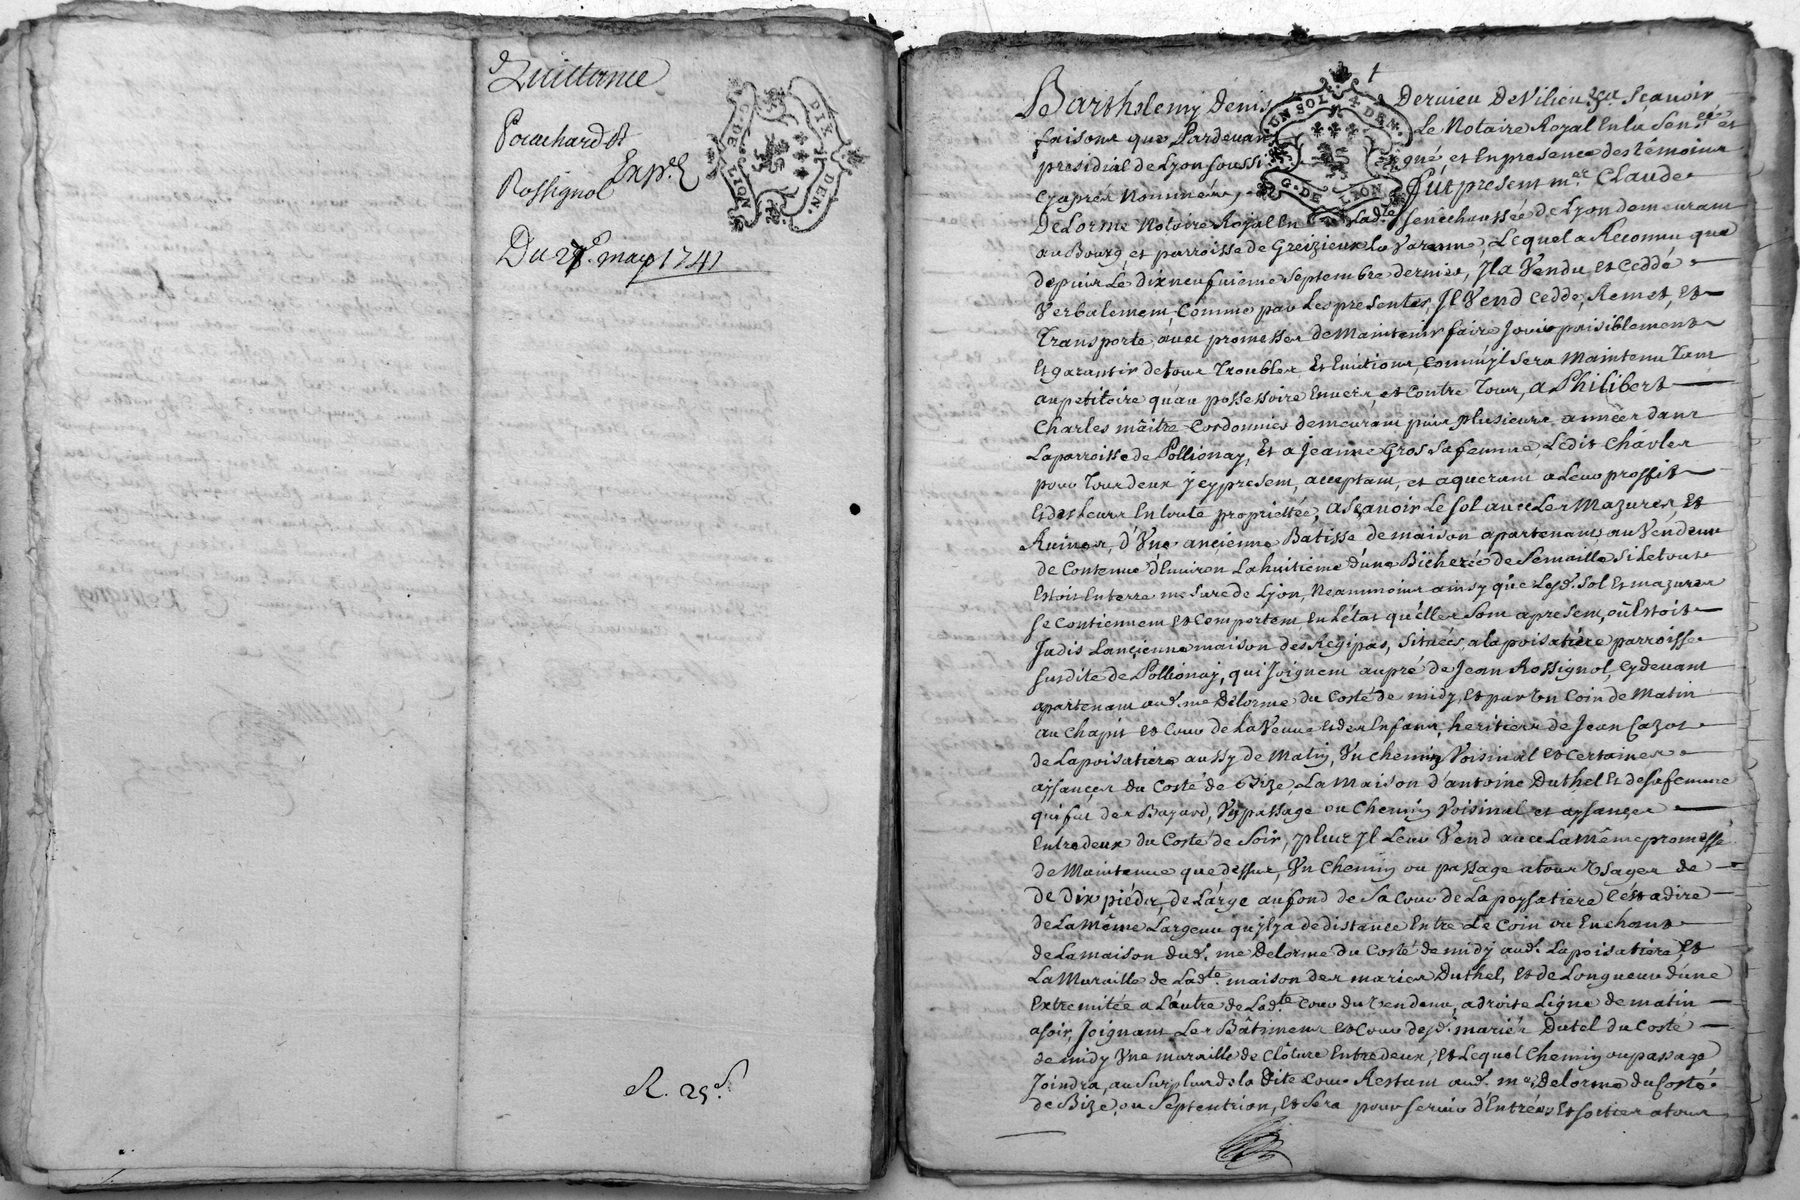 Quittance
Pour chardot
Rossignol Exp.é
Du 27.e may 1741
G. DE LION DIX II DEN.
R. 25.s
1
UN SOL 4 DEN.
G. DE LYON
Barthelemy denis Dervieu De Vilieu sca. Scavoir
faisons que Pardevant Le Notaire Royal En la Sen.ée et
presidial de Lyon soussigné et En presence des temoins
Cy apres Nommés, Fut present m.re Claude
Delorme Notoire Royal En Ladte senechaussée de Lyon demeurant
au Bourg et parroisse de Greizieux la Varenne, Lequel a Reconnu que
depuis Le dix neufuieme Septembre dernier, Jl a Vendu et Ceddé
Verbalement, Comme par Les presentes, Jl Vend Cedde, Remet, et
Transporte, avec promesses de Maintenir faire Jouir paisiblement
Et garantir de tous Troubles, Et Euictions, Comm'yl sera Maintenu Tant
au petitoire qu'au possessoire Envers, et Contre Tous, a Philibert
Charles maître Cordonnier demeurant puis plusieurs années dans
La parroisse de Pollionay, Et a Jeanne Gros Sa femme, Ledit Charles
pour Tous deux j cy present, acceptant, et aquerant a Leur proffit
Et des Leurs En toute propriettée, a Sçavoir Le sol avec Les Mazures, Et
Ruines, d'Vne ancienne Batisse de maison apartenant au Vendeur
de Contenue d'Environ La huitieme d'une Bicherée de Semaille Si Le tout
Estoit En terre mesure de Lyon, Neammoins ainsy que Lesd. Sol Et mazures
se Contiennent et Comportent En L'état qu'elles Sont a present, où Estoit
Jadis L'ancienne maison des Regipas, Situées, a la poisatiere parroisse
susdite de Pollionay, qui Joignent au pré de Jean Rossignol, cy devant
apartenant aud. me Delorme du Costé de midy, et par Vn Coin de Matin
au Chapit et Cour de La Veuve et des Enfans, heritiers de Jean Cazot
de La poisatiere aussy de Matin, Vn chemin Voisinal et Certaines
aysances du Costé de Bize, La Maison d'antoine Duthel Et de sa femme
qui fut des Bazard, Vn passage ou Chemin Voisinal et aysances
Entredeux du Costé de Soir, plus Jl Leur Vend avec La Même promesse
de Maintenue que dessus, Vn Chemin ou passage a tous Vsages de
de dix piéds, de Lârge au fond de Sa Cour de La poysatiere C'est a dire
de La Même Largeur qu'jl y a de distance Entre Le Coin ou Enchant
de La maison dud. me Delorme du Costé de midy aud. La poisatiere, Et
La Muraille de Ladte maison des mariés Duthel, Et de Longueur d'une
Extremitée a L'autre de Ladte Cour du Vendeur, a droite Ligne de matin
a soir, Joignant Les Bâtimens Et Cour desd. mariés Dutel du Costé
de midy Vne muraille de Clôture Entredeux, Et Lequel Chemin ou passage
Joindra, au Surplus de la Dite Cour Restant aud. me Delorme du Costé
de Bize, ou Septentrion, Et Sera pour servir d'Entrées Et sorties a tous